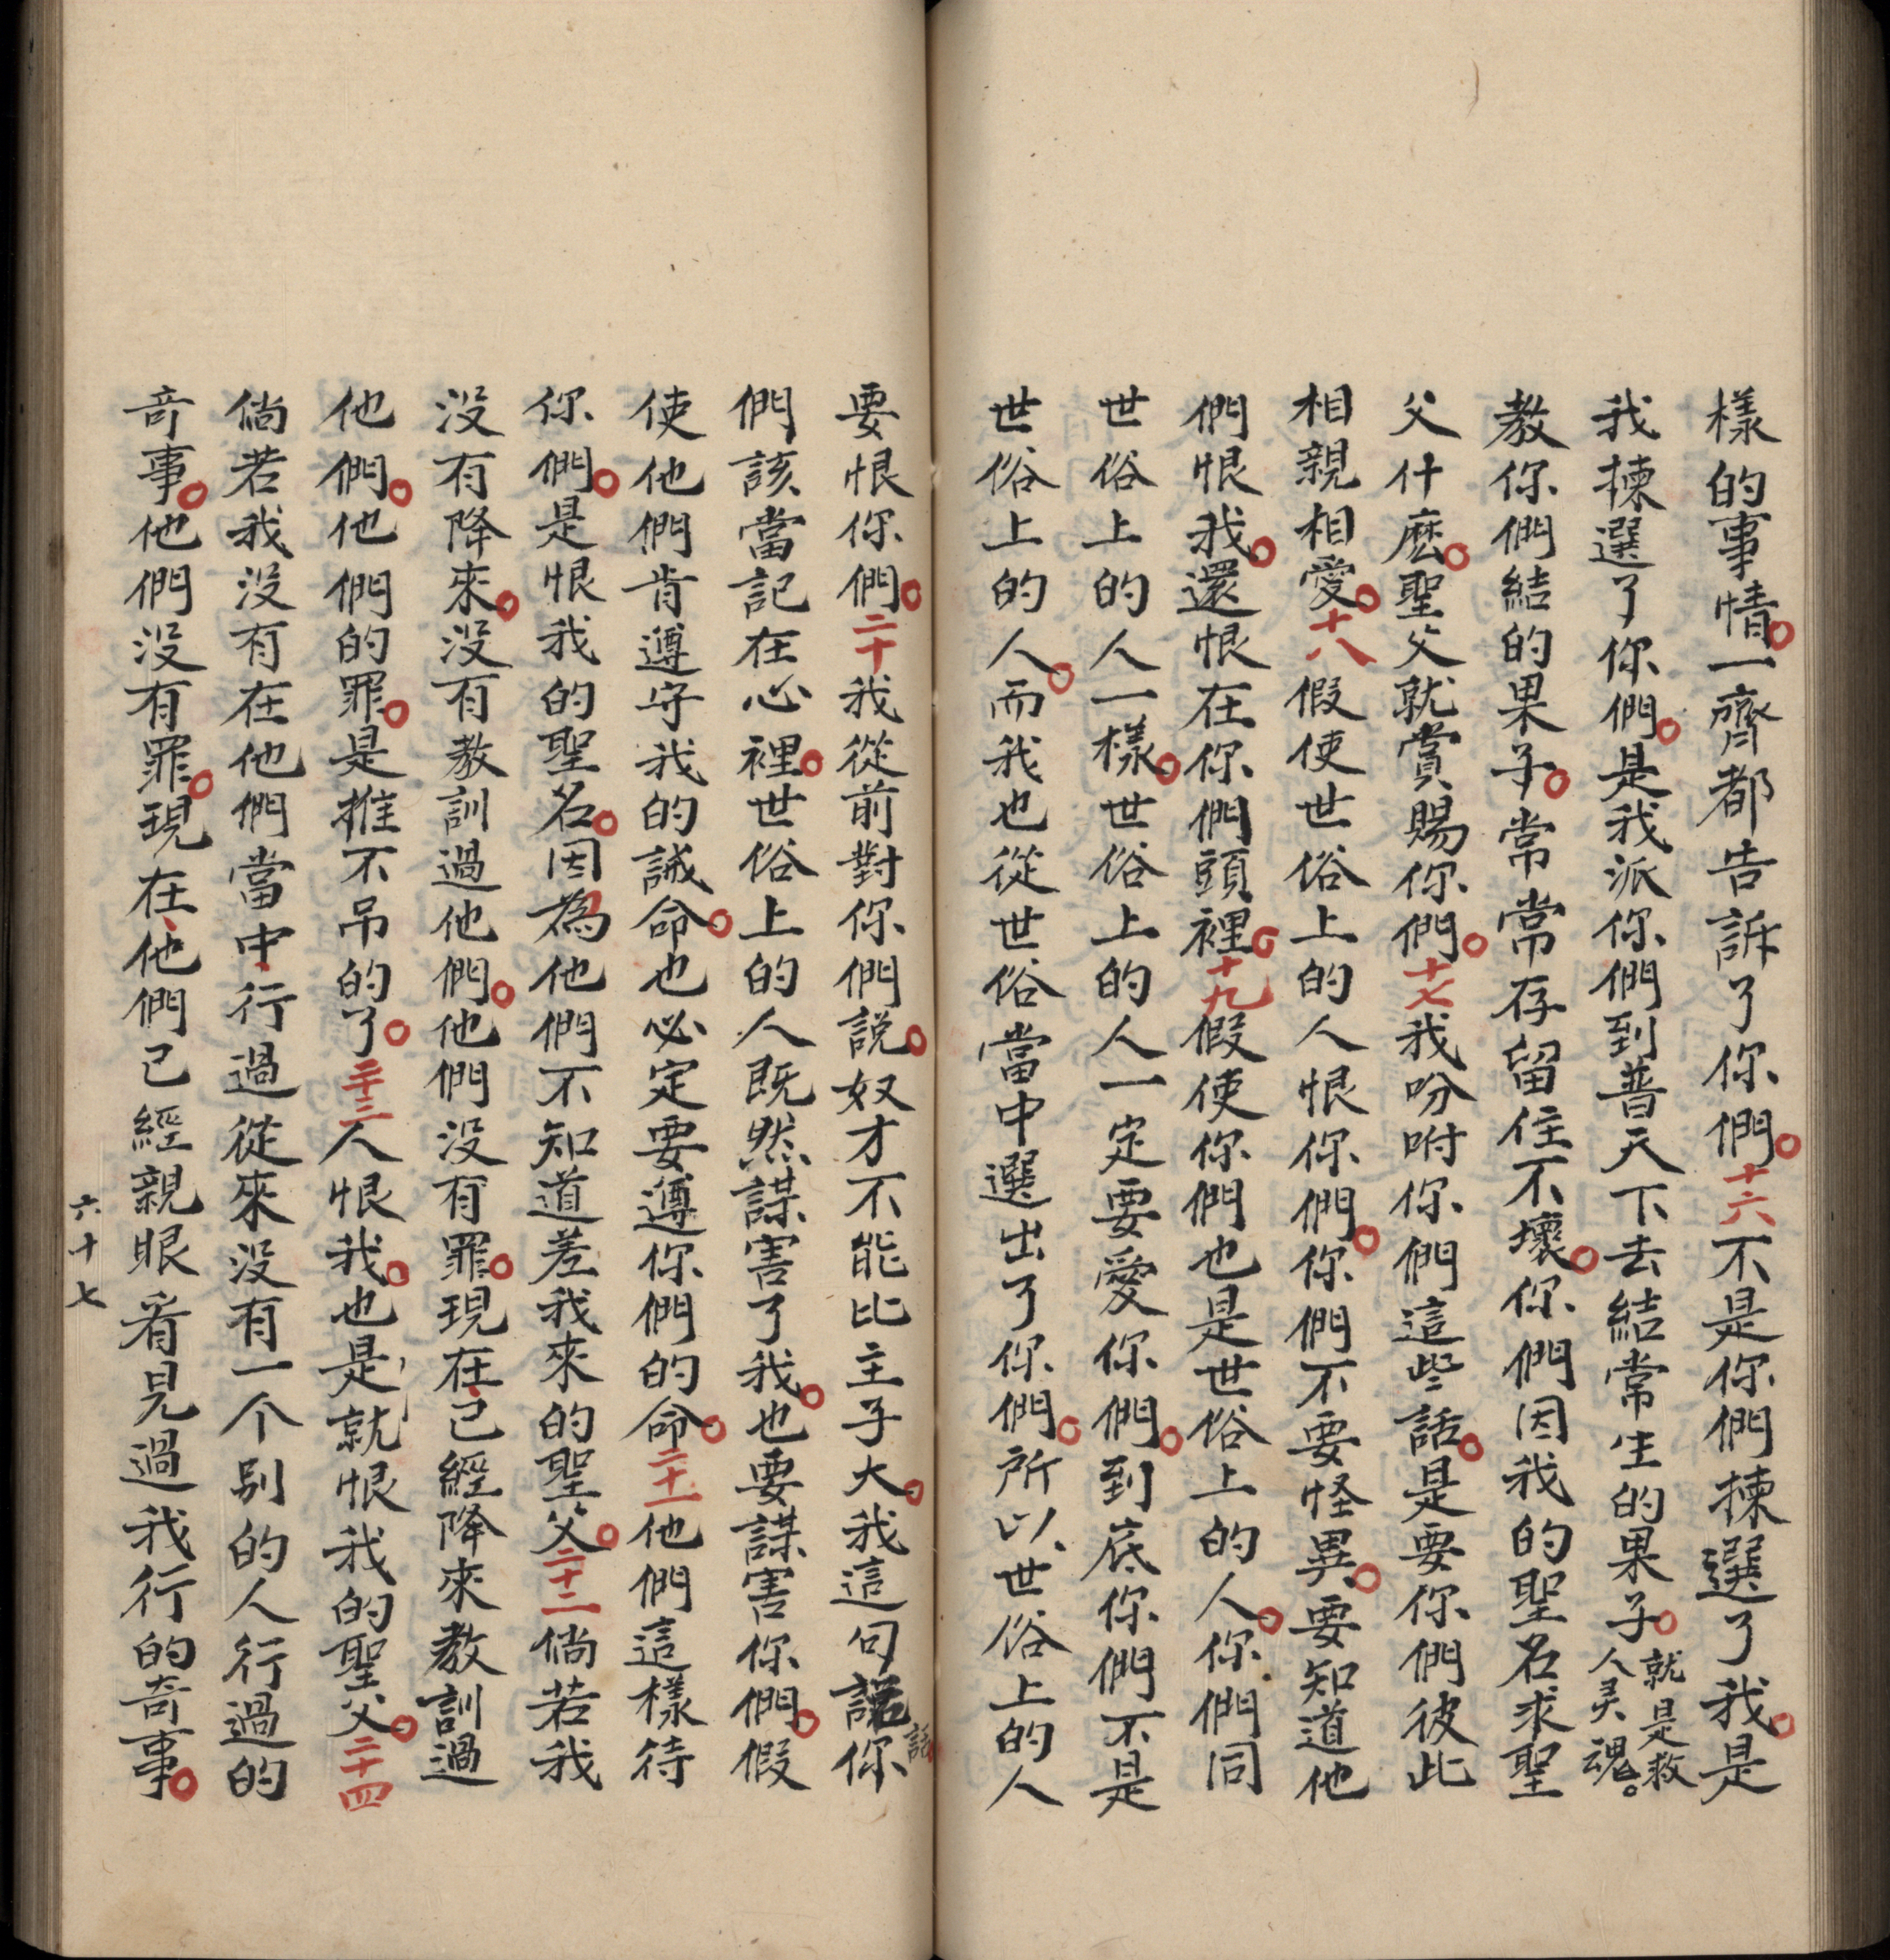 樣的事情。一齊都告訴了你們。十六不是你們揀選了我。是
我揀選了你們。是我派你們到普天下去結常生的果子。就是救人灵魂。
教你們結的果子。常常存留住不壞。你們因我的聖名求聖
父什麽。聖父就賞賜你們。十七我吩咐你們這些話。是要你們彼此
相親相愛。十八假使世俗上的人恨你們。你們不要怪異。要知道他
們恨我。還恨在你們頭裡。十九假使你們也是世俗上的人。你們同
世俗上的人一樣。世俗上的人一定要愛你們。到底你們不是
世俗上的人。而我也從世俗當中選出了你們。所以世俗上的人
要恨你們。二十我從前對你們説。奴才不能比主子大。我這句話你
們該當記在心裡。世俗上的人既然謀害了我。也要謀害你們。假
使他們肯遵守我的誡命。也必定要遵你們的命。二十一他們這樣待
你們。是恨我的聖名。因為他們不知道差我來的聖父。二十二倘若我
没有降來。没有教訓過他們。他們没有罪。現在已經降來教訓過
他們。他們的罪。是推不吊的了。二十三人恨我。也是就恨我的聖父。二十四
倘若我没有在他們當中行過從來没有一个别的人行過的
奇事。他們没有罪。現在他們已經親眼看見過我行的奇事。
六十七